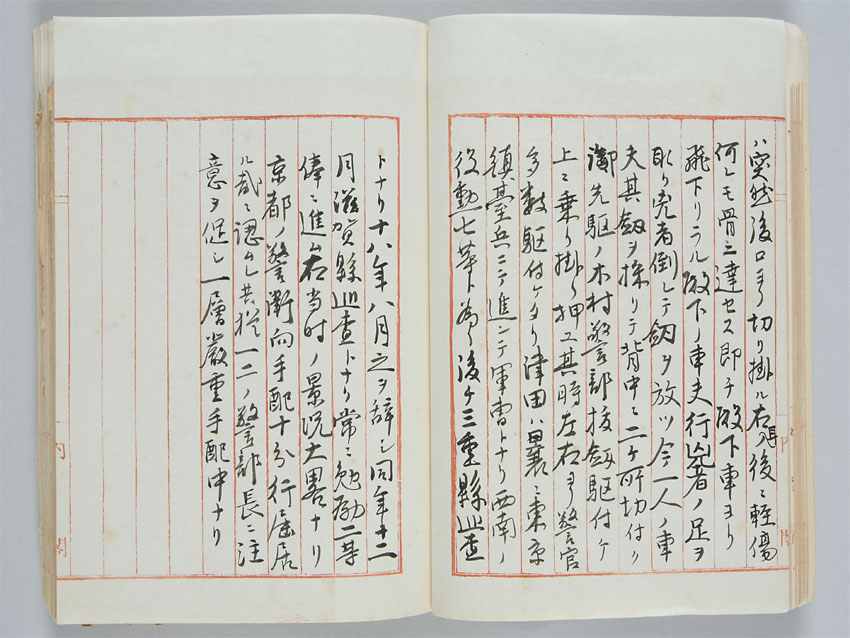 ハ突然後口ヨリ切リ掛ル右得後ニ軽傷
何レモ骨ニ達セス即チ殿下車ヨリ
飛下リラル殿下ノ車夫行兇者ノ足ヲ
取リ兇者倒レテ劔ヲ放ツ今一人ノ車
夫其劔ヲ採リテ背中ニ二ケ所切付ク
御先駆ノ木村警部抜劔駆付ケ
上ニ乗リ掛リ押ユ其時左右ヨリ警官
多数駆付ケタリ津田ハ曩ニ東京
鎮臺兵ニテ進ンテ軍曹トナリ西南ノ
役勲七等ト為リ後ケ三重縣巡査
トナリ十八年八月之ヲ辞シ同年十二
月滋賀縣巡査トナリ常ニ勉励二等
俸ニ進ム右当時ノ景况大畧ナリ
京都ノ警衛向手配十分行届居
ル哉ニ認ムレ共猶一二ノ警部長ニ注
意ヲ促シ一層嚴重手配中ナリ
内
閣
内
閣